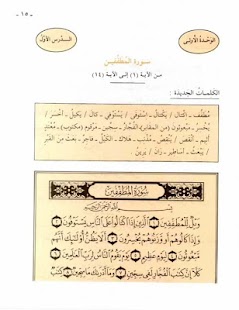 - ١٥ -
الوحدة الأولى
الدرس الأول
سورة المطففين
من الآية (١) إلى الآية (١٤)
الكلمات الجديدة :
مطفف - اكتال / يكتال - استوفى / يستوفي - كال / يكيل - أخسر /
يخسر - مبعوثون (من المقابر) الفجار - سجين - مرقوم (مكتوب) - معتد
أثيم -
يبعث - أساطير - ران / يرين
سورة المطففين
بسم الله الرحمن الرحيم
ويل للمطففين ١ الذين إذا اكتالوا على الناس يستوفون ٢
وإذا كالوهم أو وزنوهم يخسرون ٣ ألا يظن أولئك أنهم
مبعوثون ٤ ليوم عظيم ٥ يوم يقوم الناس لرب العالمين ٦
كلا إن كتاب الفجار لفي سجين ٧ وما أدراك ما سجين ٨